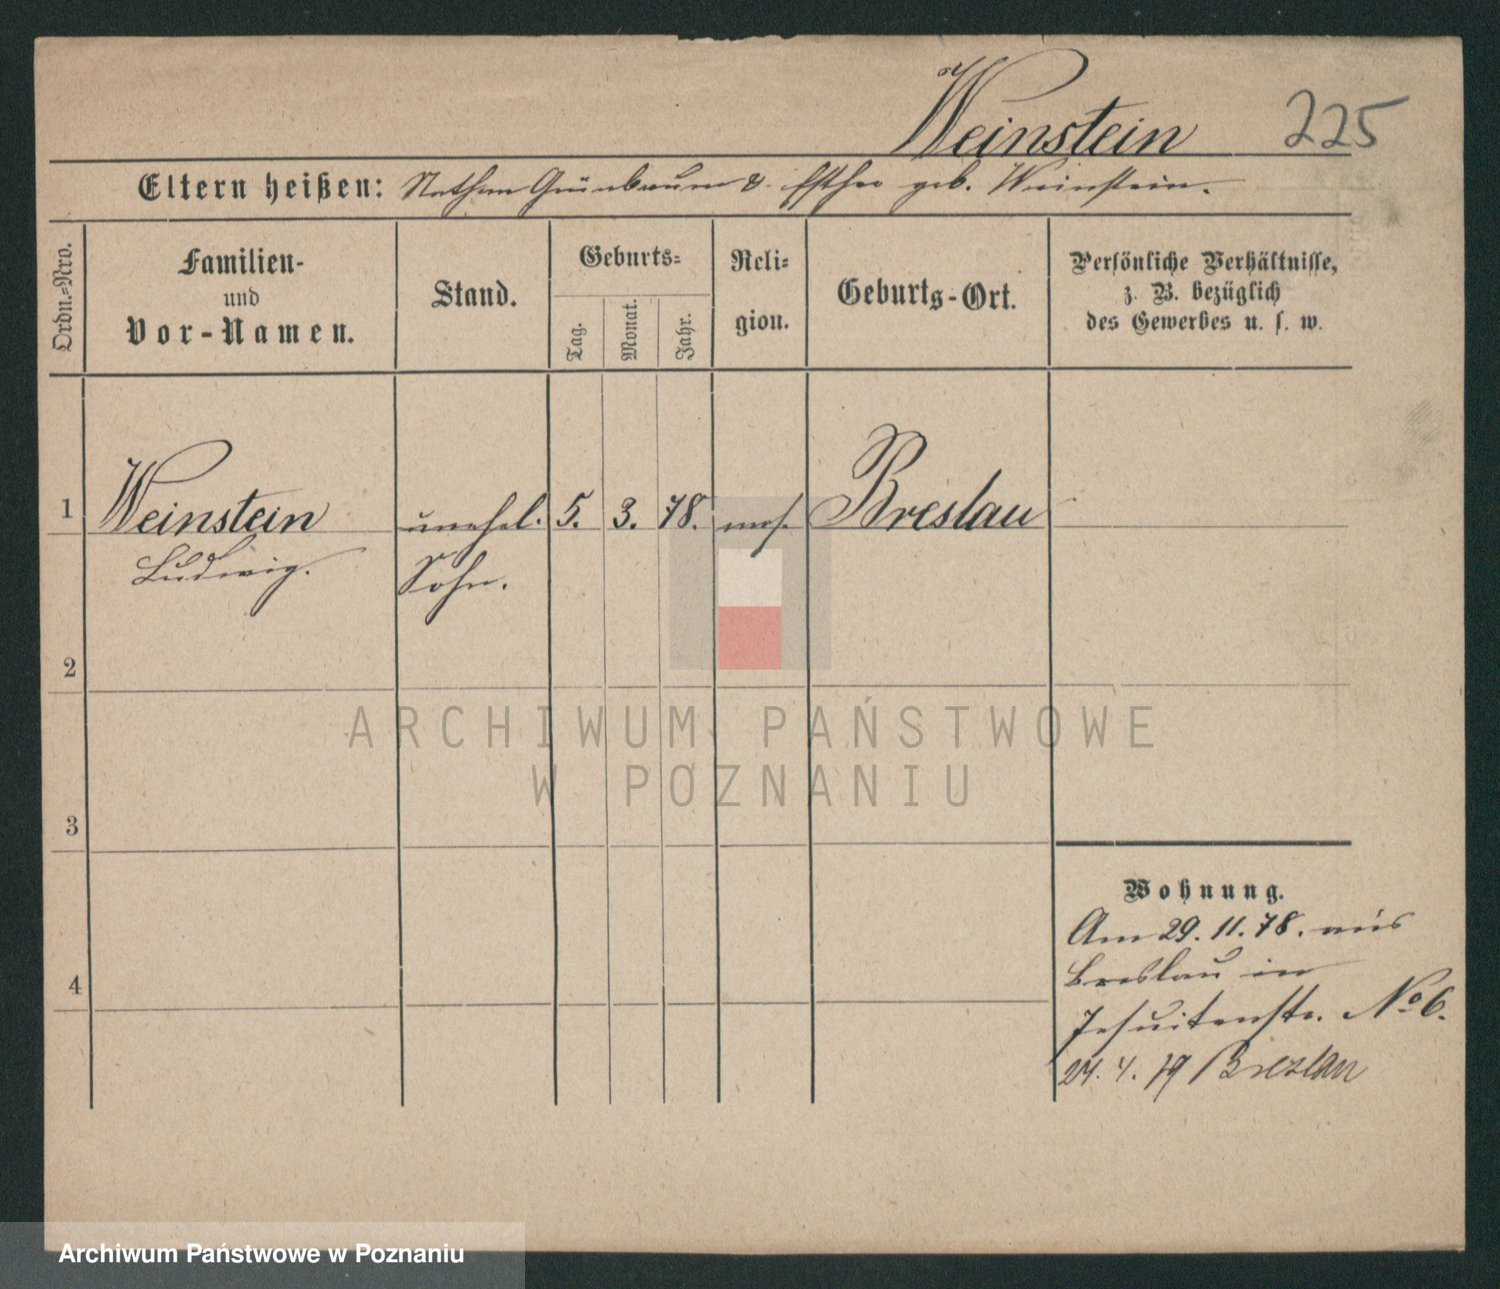 Weinstein 225
Eltern heißen: Nathan Grünbaum & Esther geb. Weinstein.
Ordn.=Nro.
Familien-
und
Vor-Namen.
Stand.
Geburts=
Tag.
Monat.
Jahr.
Reli=
gion.
Geburts-Ort.
Persönliche Verhältnisse,
z. B. bezüglich
des Gewerbes u. s. w.
1 Weinstein unehel. 5. 3. 78. mos. Breslau
Ludwig. Sohn.
2
ARCHIWUM PAŃSTWOWE
W POZNANIU
3
4
Wohnung.
Am 29. 11. 78. aus
Breslau in
Jesuitenstr. No 6.
24. 4. 79 Breslau
Archiwum Państwowe w Poznaniu